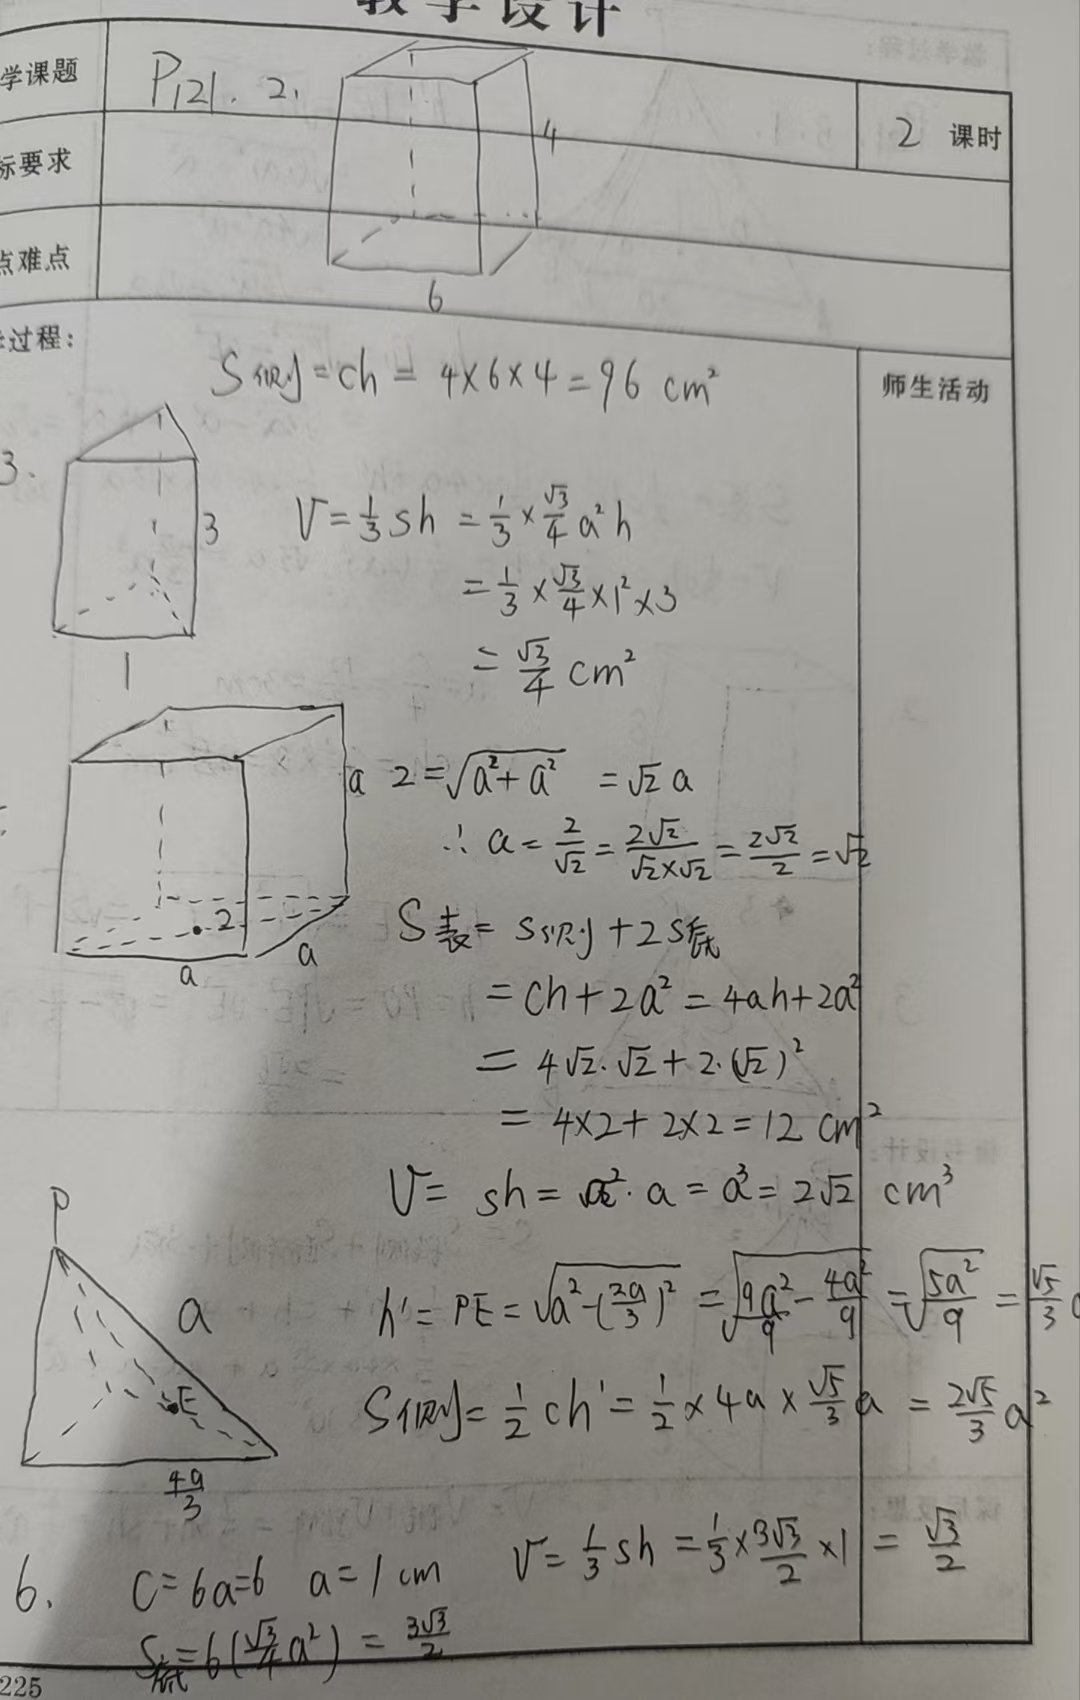 教学设计
学课题
P121. 2.
4
2 课时
标要求
点难点
6
过程:
师生活动
S侧=ch=4×6×4=96 cm²
3.
3
1
V=1/3 sh =1/3×√3/4 a²h
=1/3×√3/4×1²×3
=√3/4 cm²
a
2=√(a²+a²) =√2 a
∴ a=2/√2=2√2/(√2×√2)=2√2/2=√2
2
a
a
S表=S侧+2S底
=Ch+2a²=4ah+2a²
=4√2·√2+2·(√2)²
=4×2+2×2=12 cm²
V= sh=a²·a=a³=2√2 cm³
P
a
E
4a/3
h'=PE=√(a²-(2a/3)²) =√(9a²/9-4a²/9) =√(5a²/9) =√5/3 a
S侧=1/2 ch'=1/2×4a×√5/3 a =2√5/3 a²
6. C=6a=6 a=1cm
V=1/3 sh=1/3×3√3/2×1=√3/2
S底=6(√3/4 a²)=3√3/2
225